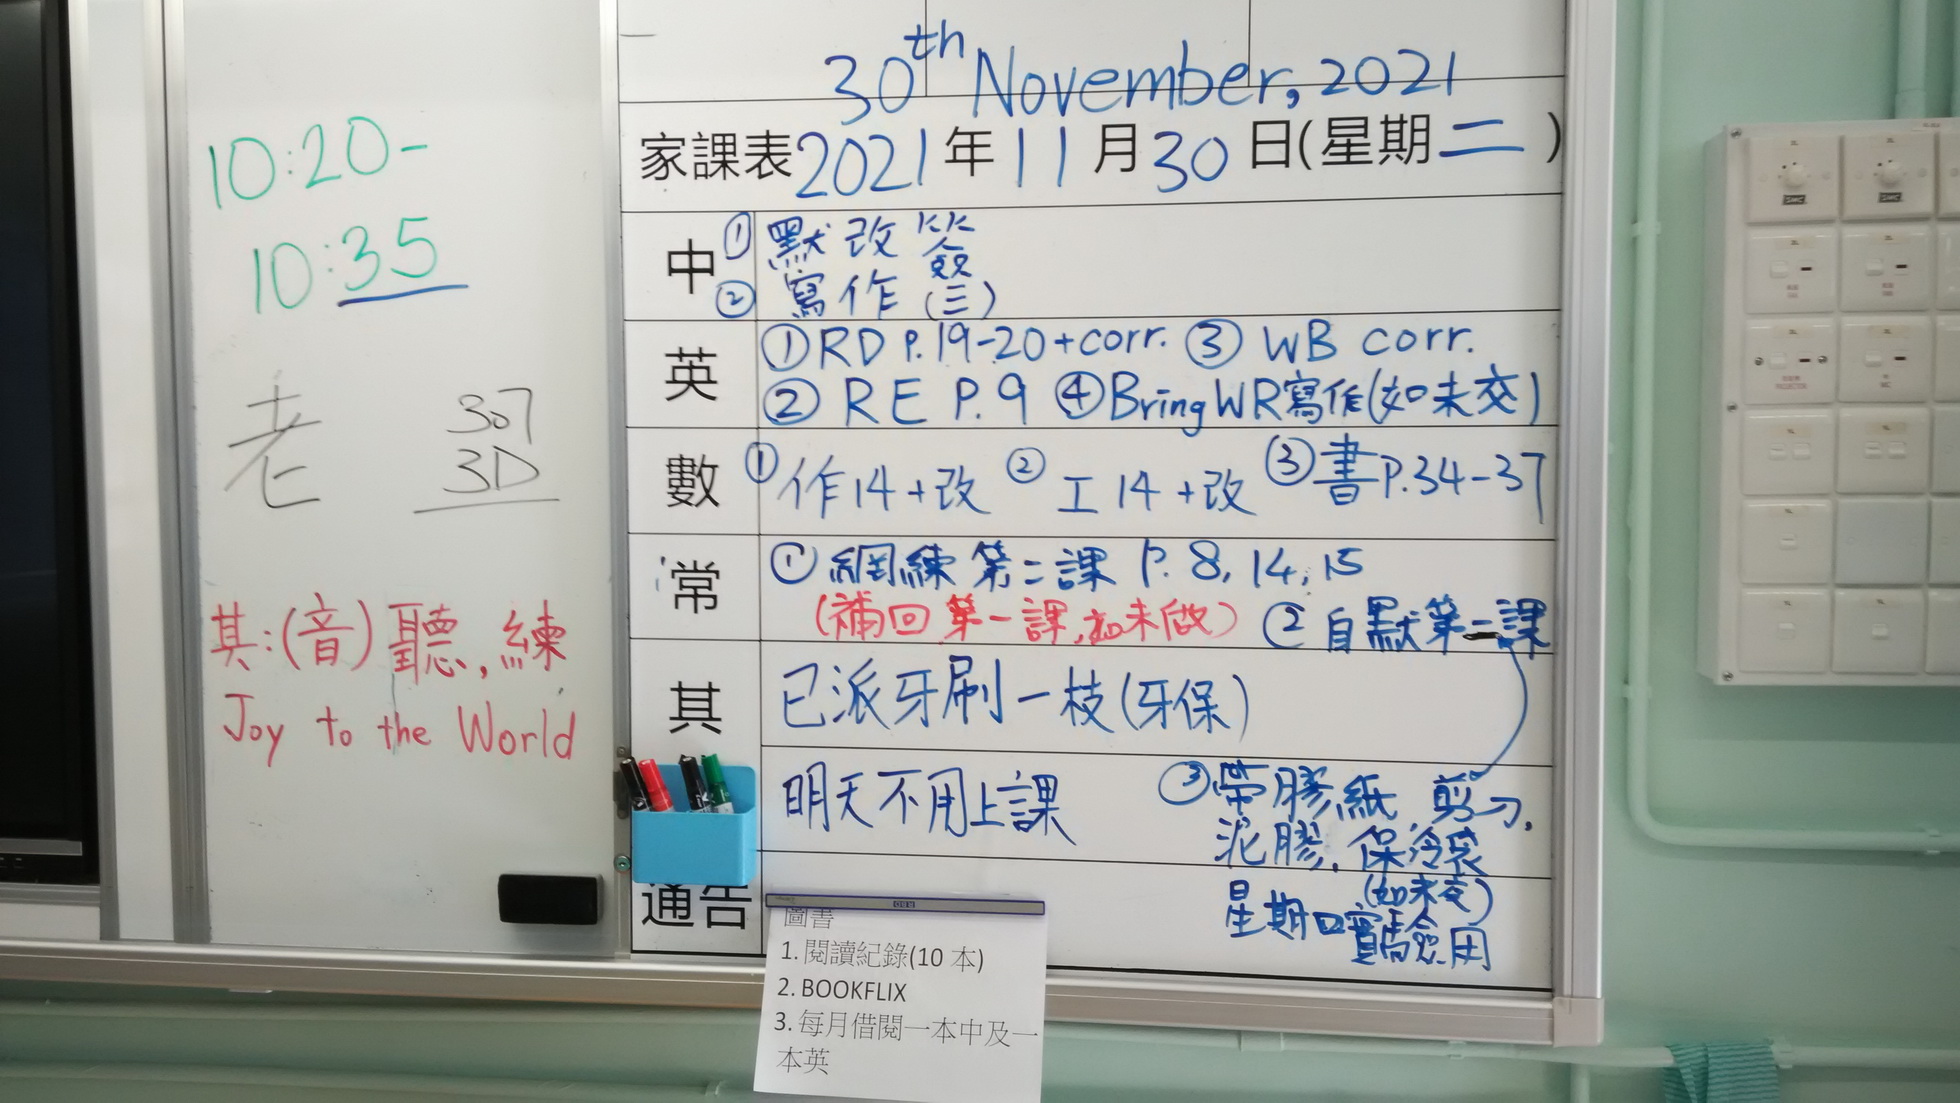 10:20-
10:35
老
307
3D
其:(音)聽,練
Joy to the World
30th November, 2021
家課表2021年11月30日(星期二)
中 ① 默改簽
② 寫作(三)
英 ①RD P.19-20+corr. ③ WB corr.
② RE P.9 ④Bring WR寫作(如未交)
數 ①作14+改 ②工14+改 ③書P.34-37
常 ①網練第二課 P. 8, 14, 15
(補回第一課,如未做) ②自默第一課
其 已派牙刷一枝(牙保)
明天不用上課
③帶膠紙,剪刀,
泥膠,保冷袋
(如未交)
星期四實驗用
通告
圖書
1. 閱讀紀錄(10 本)
2. BOOKFLIX
3. 每月借閱一本中及一
本英